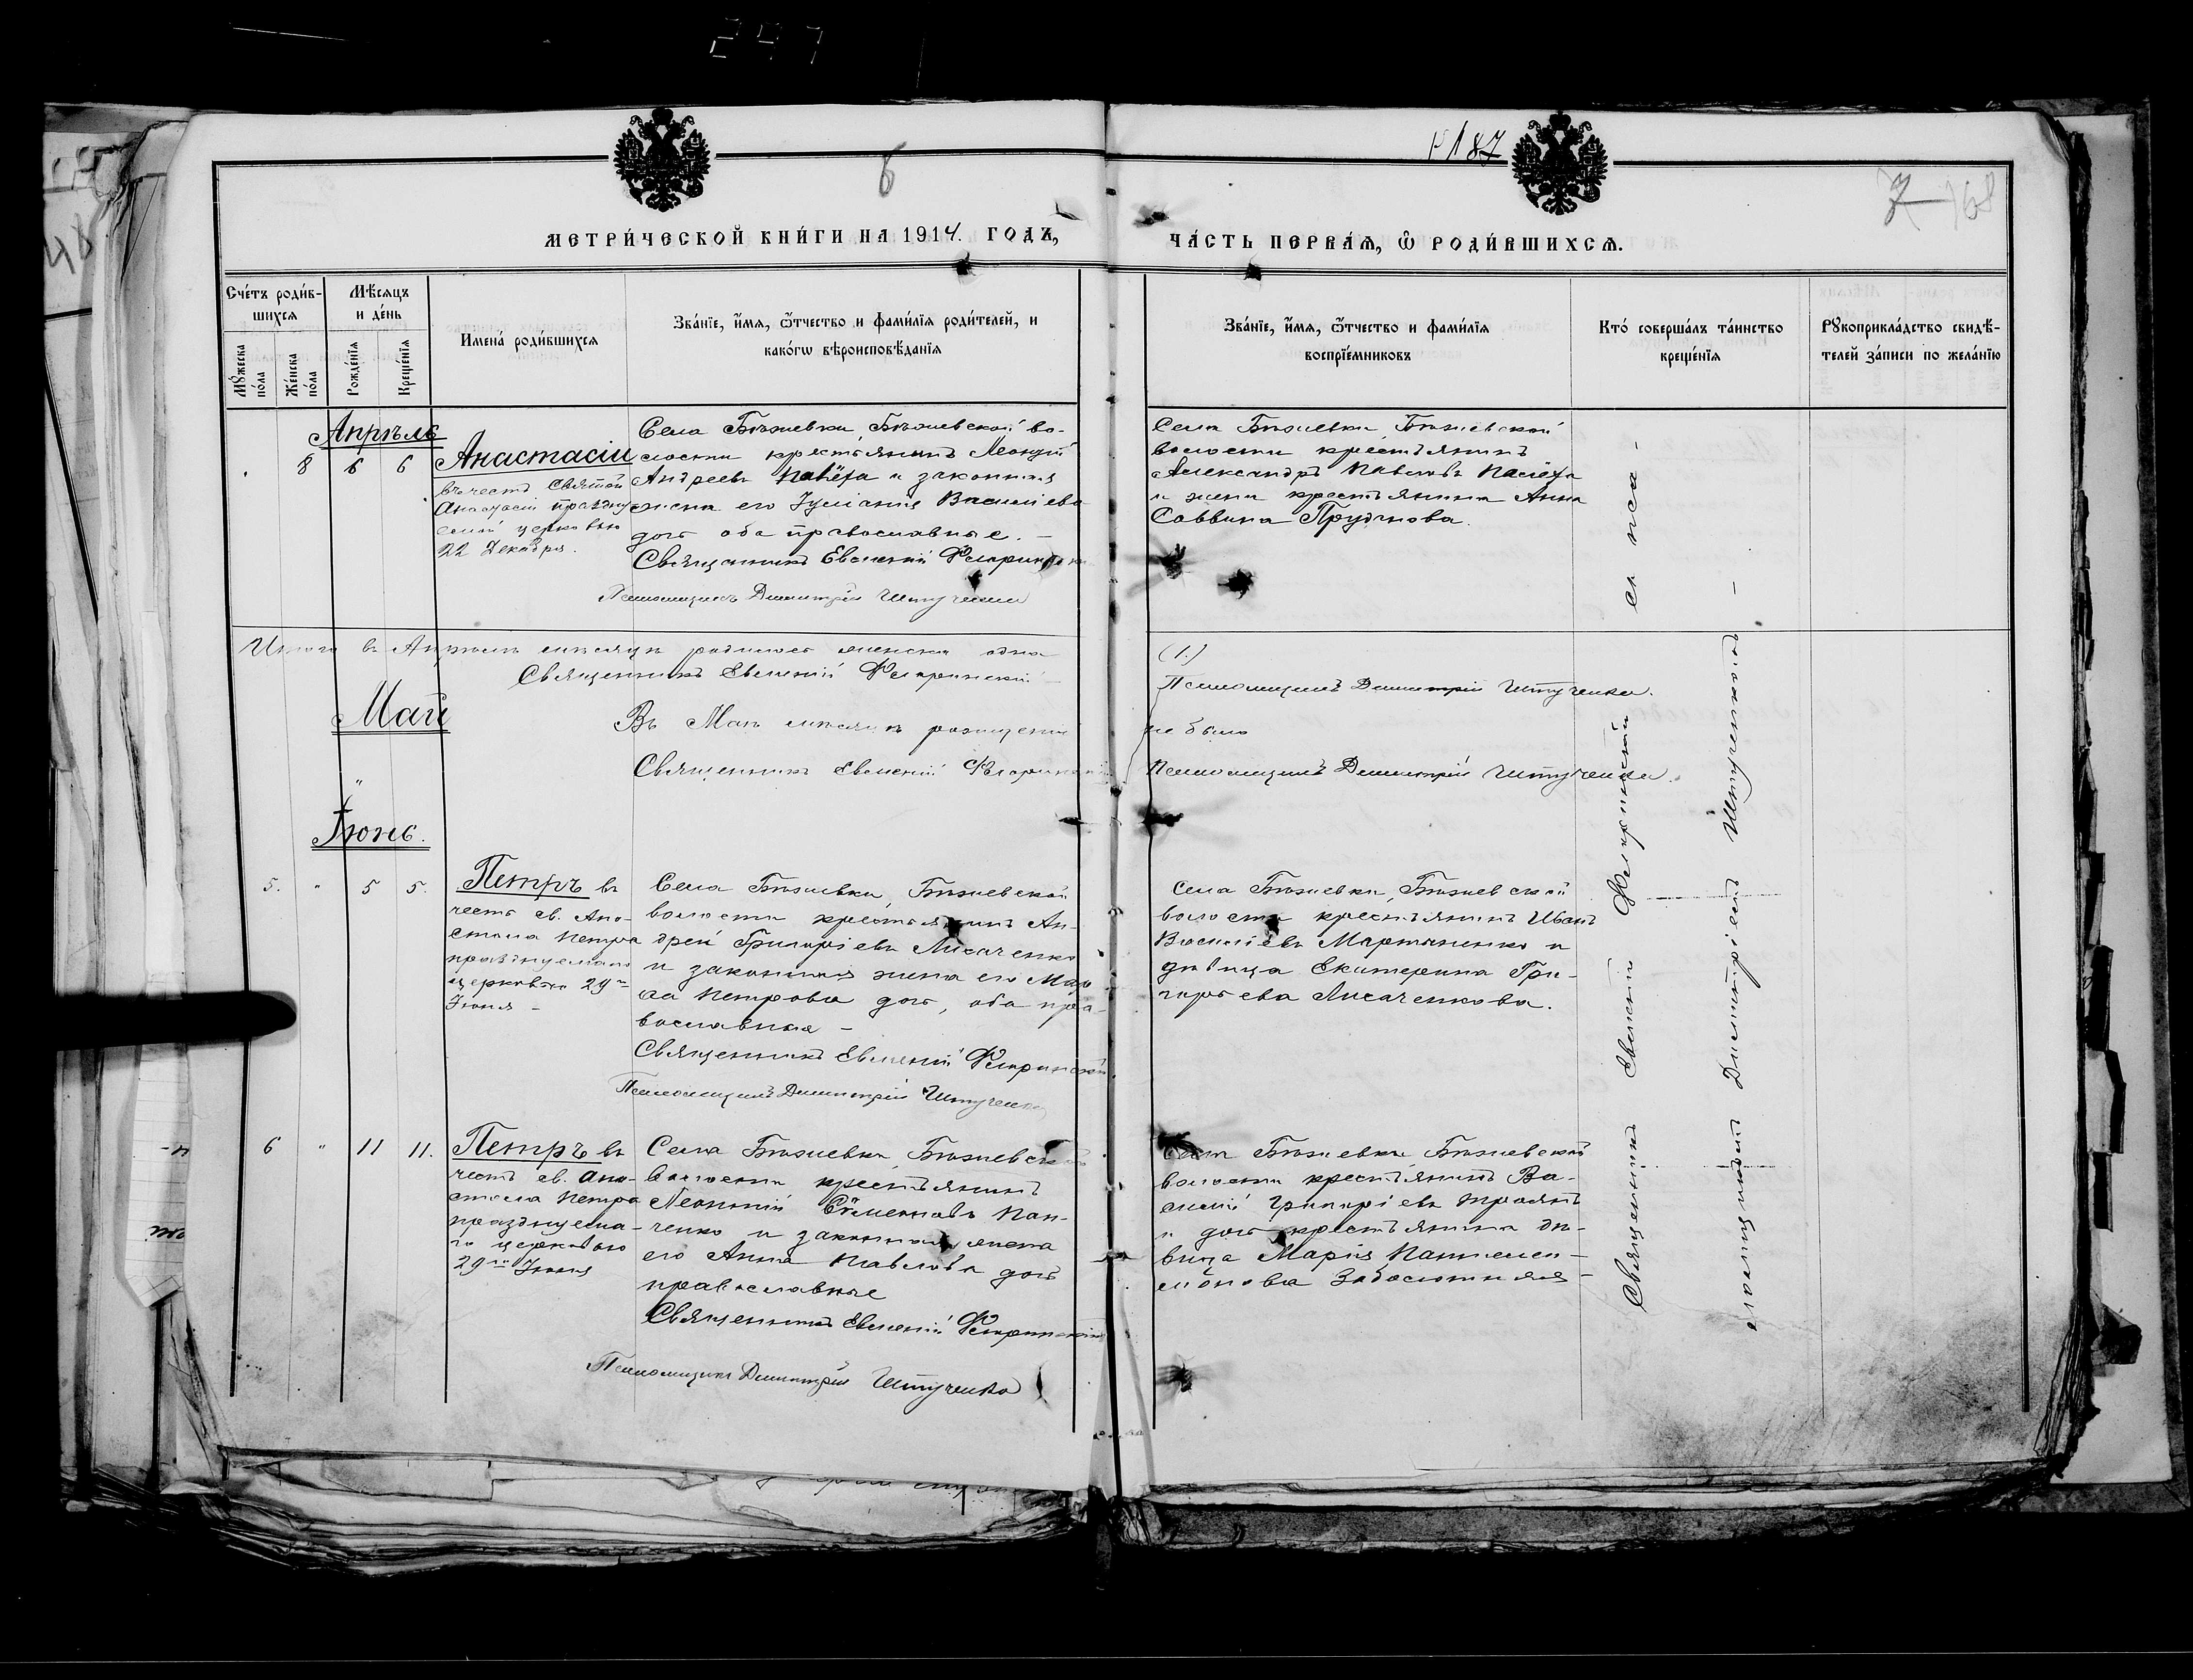 6
187
7 768
МЕТРИ́ЧЕСКОЙ КНИ́ГИ НА 1914. ГОДЪ,
ЧА́СТЬ ПЕРВА́Ѧ, Ѽ РОДИ́ВШИХСѦ.
Сче́тъ роди́в-
шихсѧ
Мѣ́сѧцъ
и де́нь
Мꙋ́жеска по́ла
Же́нска по́ла
Рожде́нїѧ
Креще́нїѧ
Имена́ роди́вшихсѧ
Зва́нїе, и́мѧ, ѻ҆́тчество и фами́лїѧ роди́телей, и
како́гѡ вѣроисповѣ́данїѧ
Зва́нїе, и́мѧ, ѻ҆́тчество и фами́лїѧ
воспрїе́мниковъ
Кто́ соверша́лъ та́инство
креще́нїѧ
Рꙋкоприкла́дство свидѣ́-
телей за́писи по жела́нїю
Апрѣль
8 6 6
Анастасіи
въ честь Святой
Анастасіи праздну
емой церковью
22 Декабря.
Села Бѣзиевки, Бѣзиевской во-
лости крестьянинъ Леонтій
Андреевъ и законная
жена его Іуліанія Василіева
дочь оба православные. –
Священникъ Евгеній
Псаломщикъ Димитрій Штученко
Села Бѣзиевки Бѣзиевской
волости крестьянинъ
Александръ Павловъ
и жена крестьянина Анна
Саввина Прудчкова.
Итого въ Апрѣлѣ мѣсяцѣ родилось женска одна
Священникъ Евгеній
(1.)
Псаломщикъ Димитрій Штученко.
Май
Въ Маѣ мѣсяцѣ рожденій
не было
Священникъ Евгеній
Псаломщикъ Димитрій Штученко.
Іюнь.
5. " 5 5.
Петръ въ
честь св. Апо-
стола Петра
празднуемаго
церковью 29го
Іюня –
Села Бѣзиевки, Бѣзиевской
волости крестьянинъ Ан-
дрей Григоріевъ Лисаченко
и законная жена его
Петрова дочь, оба пра-
вославные –
Священникъ Евгеній
Псаломщикъ Димитрій Штученко
Села Бѣзиевки, Бѣзиевской
волости крестьянинъ Иванъ
Василіевъ Мартыненко и
дѣвица Екатерина Гри-
горьева Лисаченкова.
6 " 11 11.
Петръ въ
честь св. Апо-
стола Петра
празднуема-
го церковью
29го Іюня
Села Бѣзиевки, Бѣзиевской
волости крестьянинъ
Леонтій Сѵмеоновъ Пан-
ченко и законная жена
его Анна Павлова дочь
православные
Священникъ Евгеній
Псаломщикъ Димитрій Штученко
Села Бѣзиевки Бѣзиевской
волости крестьянинъ Ва-
силій Григоріевъ Троянъ
и дочь крестьянина дѣ-
вица Марія Пантелеи-
монова
Священникъ Евгеній съ пса-
ломщикомъ Димитріемъ Штученкомъ –